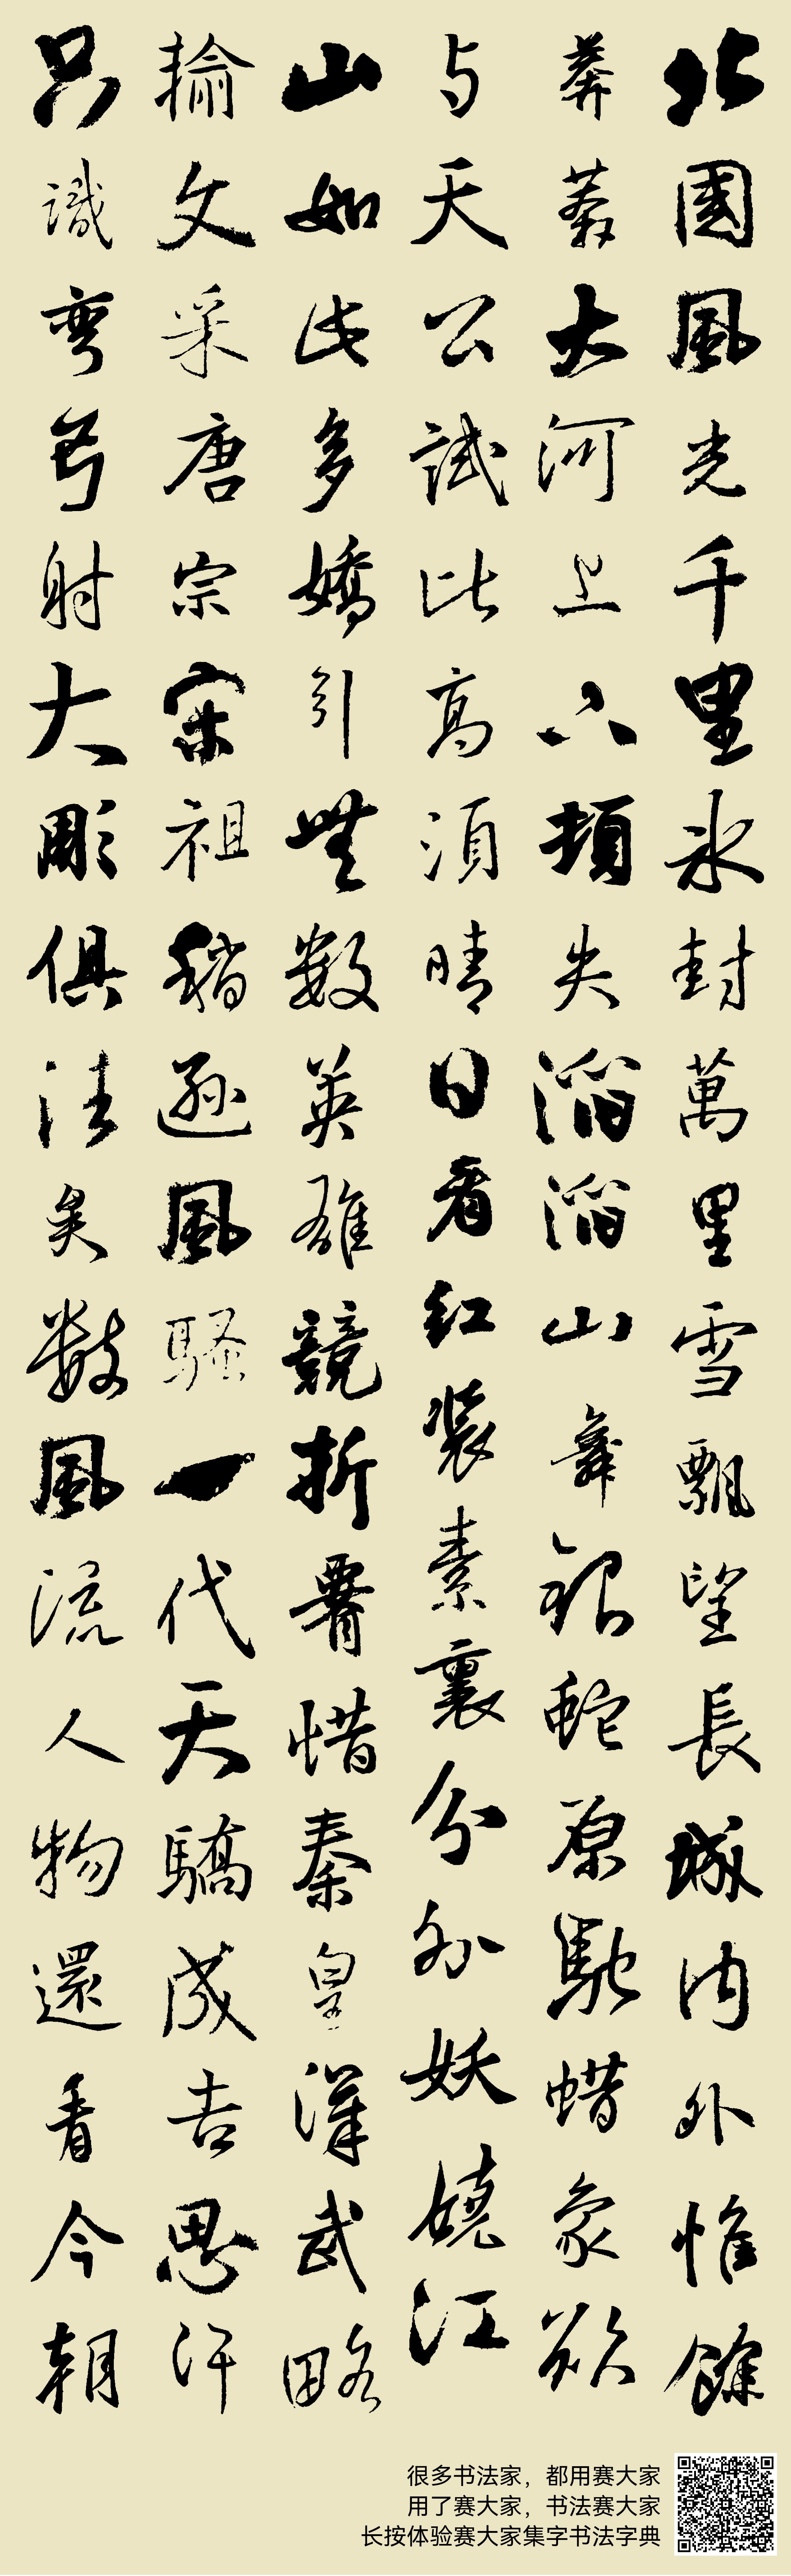 北國風光千里氷封萬里雪飄望長城内外惟餘
莽莽大河上下頓失滔滔山舞銀蛇原馳蜡象欲
与天公試比高須晴日看红装素裹分外妖嬈江
山如此多嬌引無數英雄競折腰惜秦皇漢武略
揄文采唐宗宋祖稍遜風騷一代天驕成吉思汗
只識弯弓射大彫俱往矣數風流人物還看今朝
很多书法家，都用赛大家
用了赛大家，书法赛大家
长按体验赛大家集字书法字典